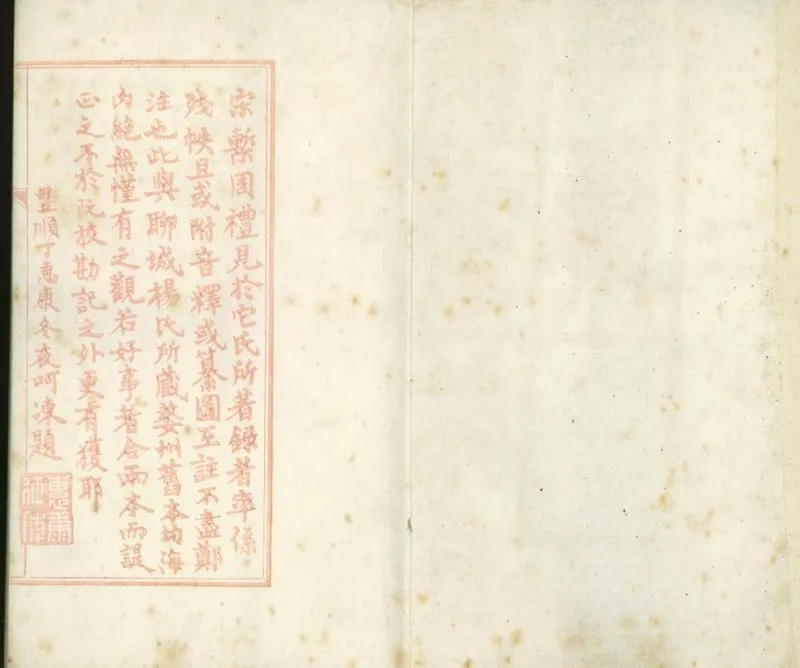 宋槧周禮見於它氏所著錄者率係
殘帙且或附音釋或纂圖互註不盡鄭
注也此與聊城楊氏所藏婺州舊本均海
内絕無僅有之觀若好事者合兩本而諟
正之不於阮校勘記之外更有獲耶
豐順丁惠康冬夜呵凍題